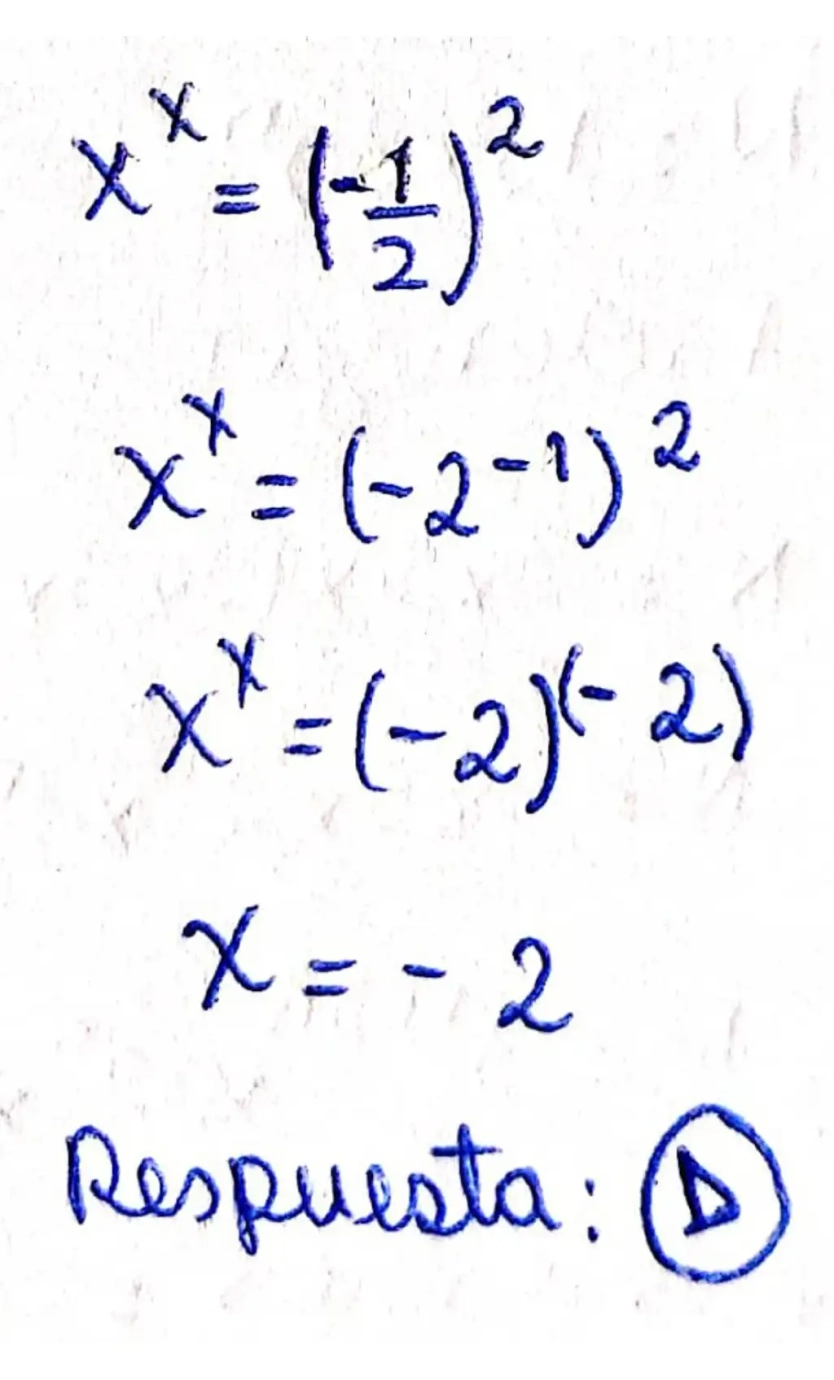 x^x = (-1/2)^2
x^x = (-2^-1)^2
x^x = (-2)^(-2)
x = -2
Respuesta: D